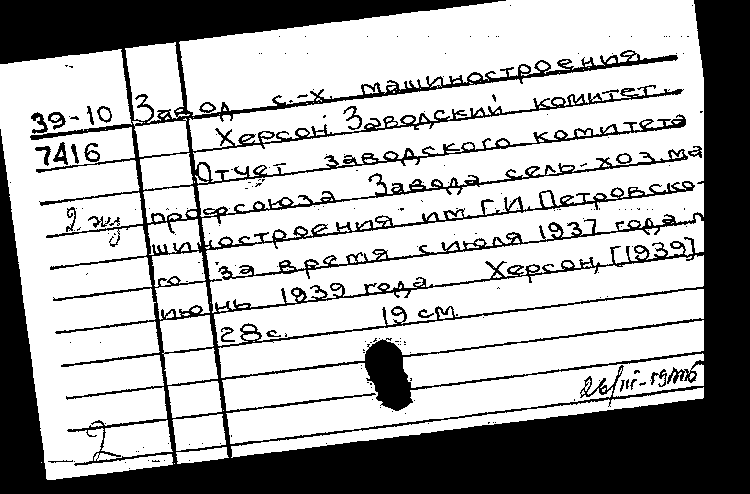 39-10 Завод с.-х. машиностроения.
7416 Херсон. Заводский комитет.
Отчет заводского комитета
2 экз профсоюза Завода сель-хоз.ма
шиностроения им. Г.И. Петровско-
го за время с июля 1937 года п
июнь 1939 года. Херсон, [1939]
28с. 19 см.
2